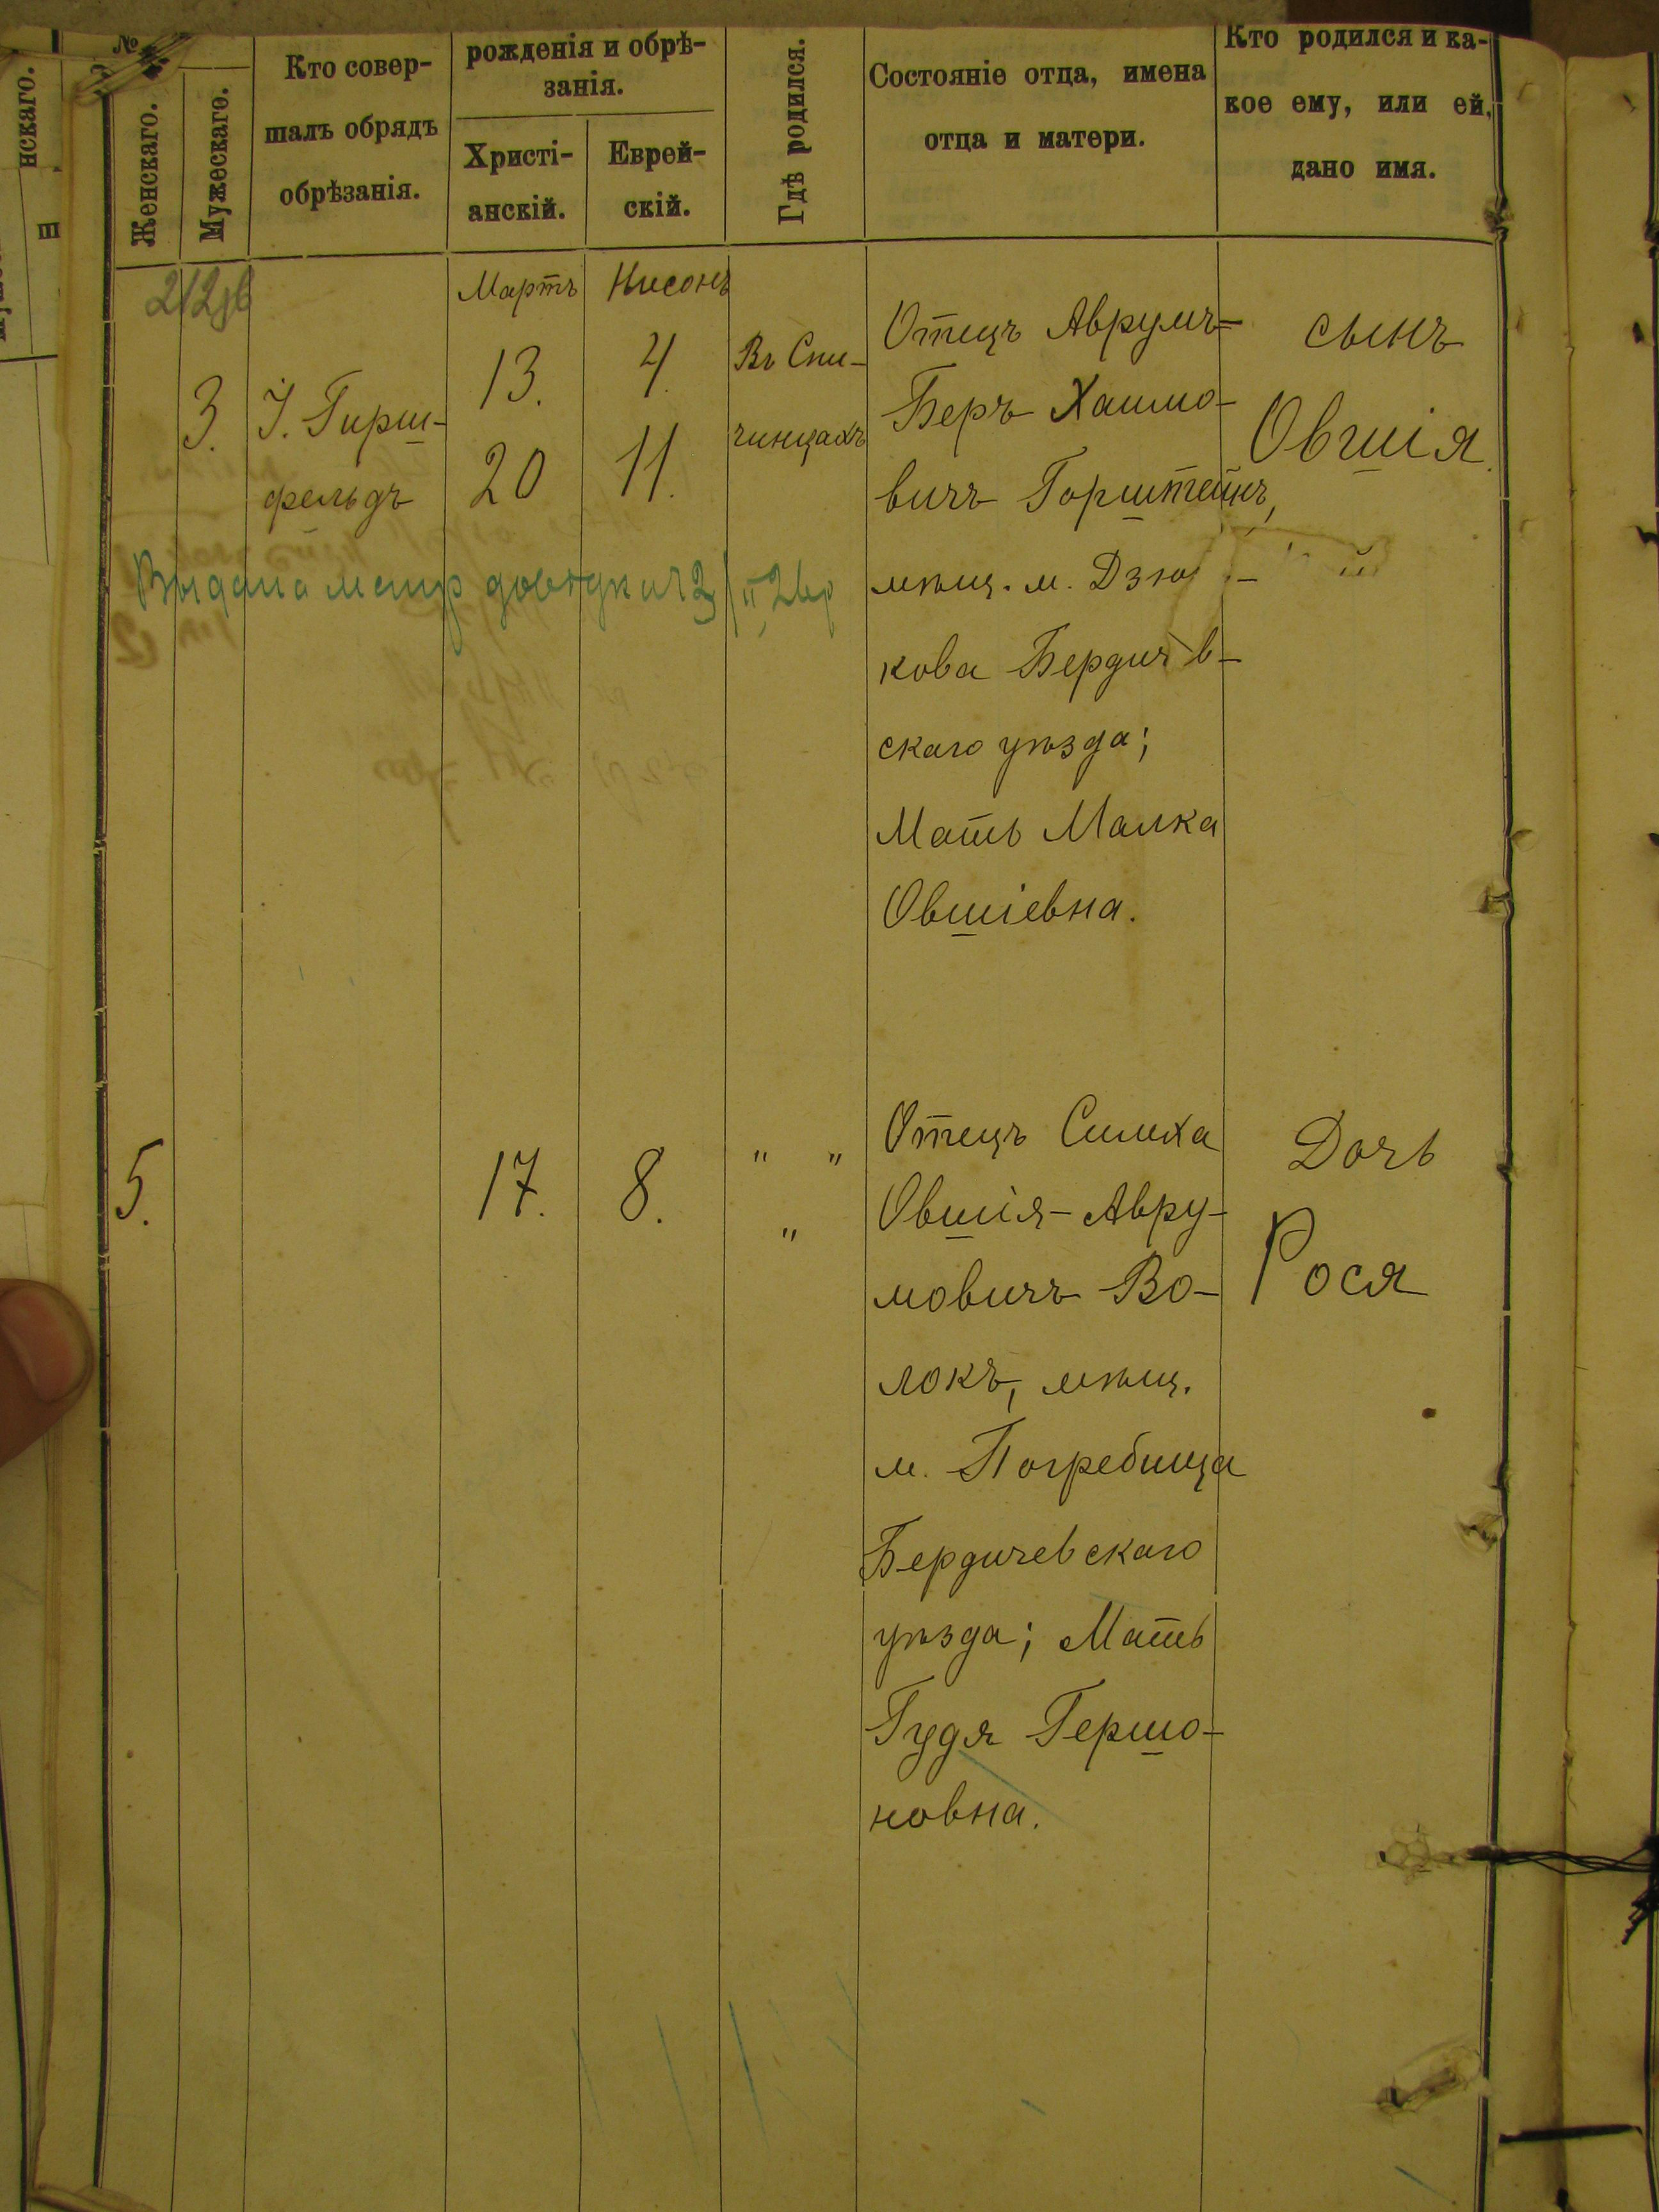 №
Женскаго.
Мужескаго.
Кто совер-
шалъ обрядъ
обрѣзанія.
рожденія и обрѣ-
занія.
Христі-
анскій.
Еврей-
скій.
Гдѣ родился.
Состояніе отца, имена
отца и матери.
Кто родился и ка-
кое ему, или ей,
дано имя.
нскаго.
Мартъ
Нисонъ
3.
І. Гирш-
фельдъ
13.
20
4.
11.
Въ Спи-
чинцахъ
Отецъ Аврумъ=
Беръ Хаимо-
вичъ Горштейнъ,
мѣщ. м. Дзю-
кова Бердич в-
скаго уѣзда;
Мать Малка
Овшіевна.
сынъ
Овшія.
Выдана метр довідка ч 2
5.
17.
8.
" "
"
Отецъ Симха
Овшія-Авру-
мовичъ Во-
локъ, мѣщ.
м. Погребища
Бердичевскаго
уѣзда; Мать
Гудя Гершо-
новна.
Дочь
Рося